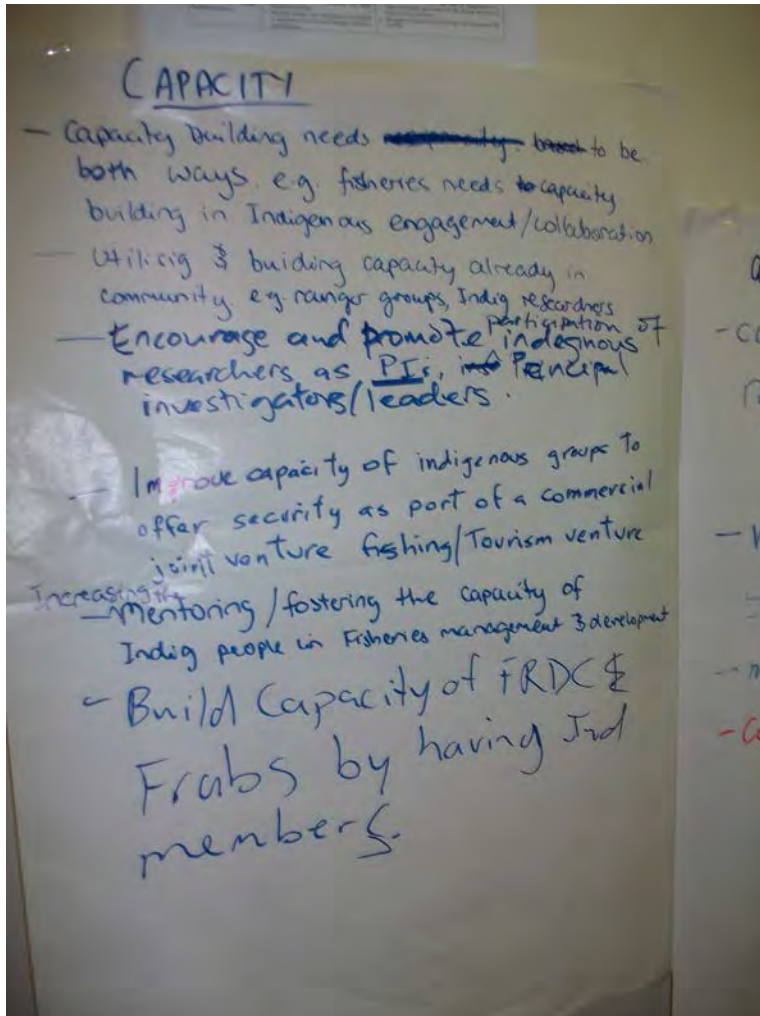 CAPACITY
- Capacity Building needs to be
both ways. e.g. fisheries needs to capacity
building in Indigenous engagement/collaboration
- Utilisig & buiding capacity already in
community. e.g. ranger groups, Indig researchers
participation of
- Encourage and promote indegnous
researchers as PIs, Principal
investigators/leaders.
- Improve capacity of indigenous groups to
offer security as part of a commercial
joint venture fishing/Tourism venture
Increasing the
- Mentoring/fostering the capacity of
Indig people in Fisheries management & development
- Build Capacity of FRDC &
Frabs by having Ind
members.